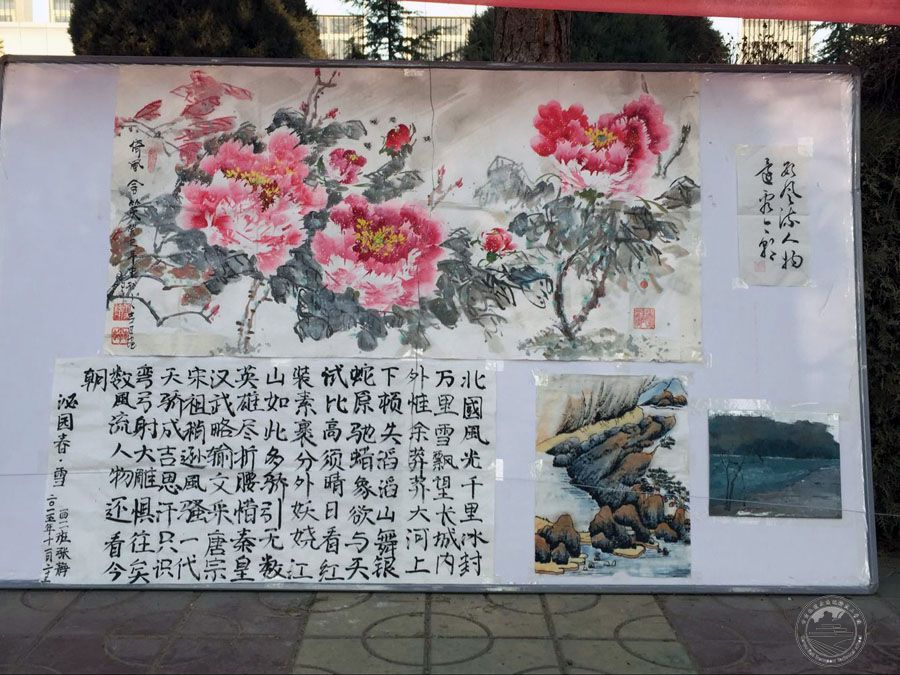 数风流人物
还看今朝
北國風光千里冰封
万里雪飘望长城内
外惟余莽莽大河上
下顿失滔滔山舞银
蛇原驰蜡象欲与天
试比高须晴日看红
装素裹分外妖娆江
山如此多骄引无数
英雄尽折腰惜秦皇
汉武略输文采唐宗
宋祖稍逊风骚一代
天骄成吉思汗只识
弯弓射大雕惧往矣
数风流人物还看今
朝
沁园春·雪
二班张静
二〇一五年十一月二十